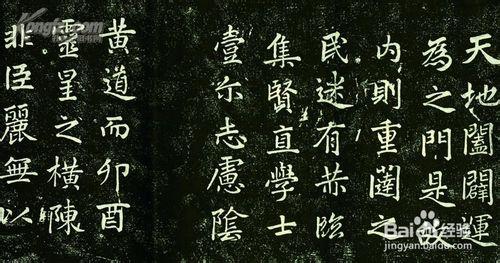 天地闔闢運
為之門是
內則重闥之
民迷有恭臨
集賢直學士
壹尒志慮陰
黄道而卯酉
靈星之横陳
非臣麗無以
Bai 经验
jingyan.baidu.com